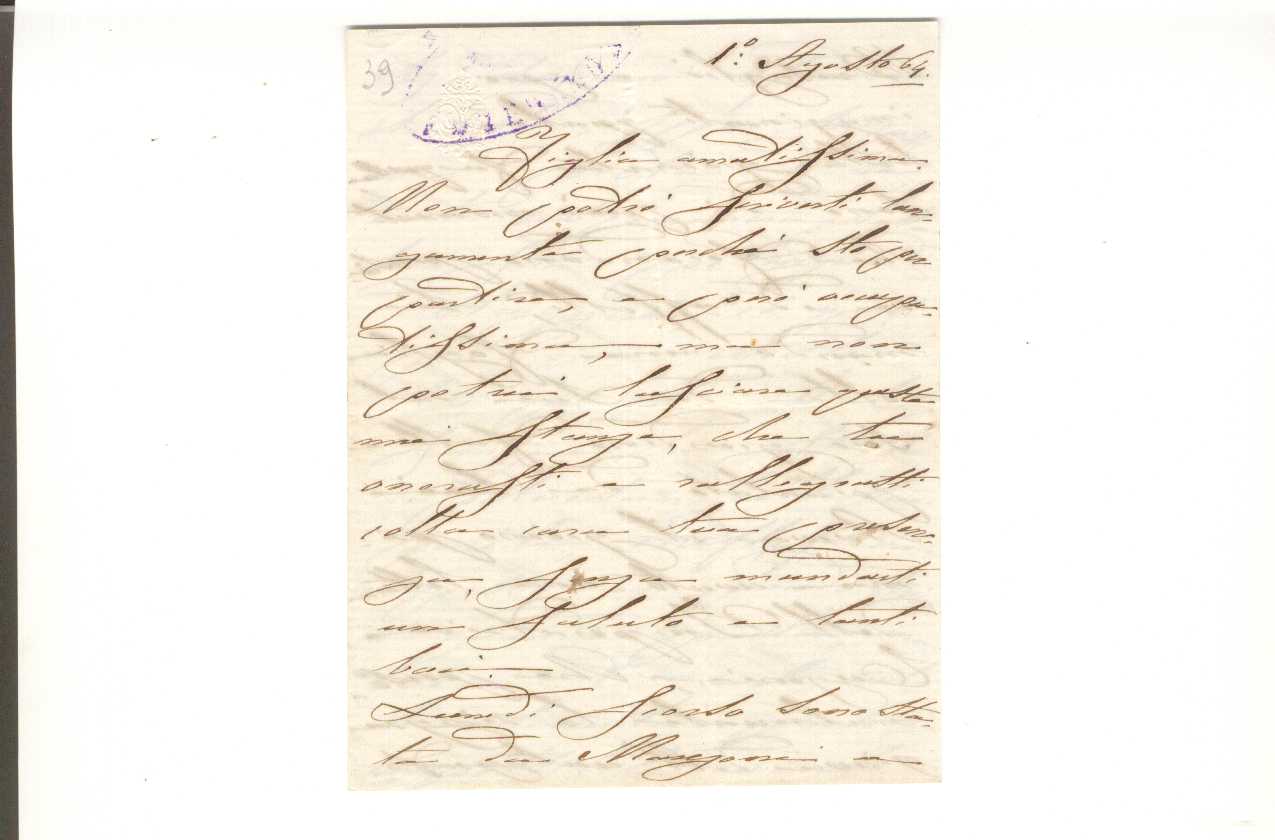 39
1º: Agosto 64.
Figlia amatissima.
Non potrò scriverti lun-
gamente perchè sto per
partire, e però occupa-
tissima, ma non
potrei lasciare questa
mia stanza, che tu
onorasti e rallegrasti
colla cara tua presen-
za, senza mandarti
un saluto e tanti
baci.
Lunedì scorso sono sta-
ta da Manzoni e